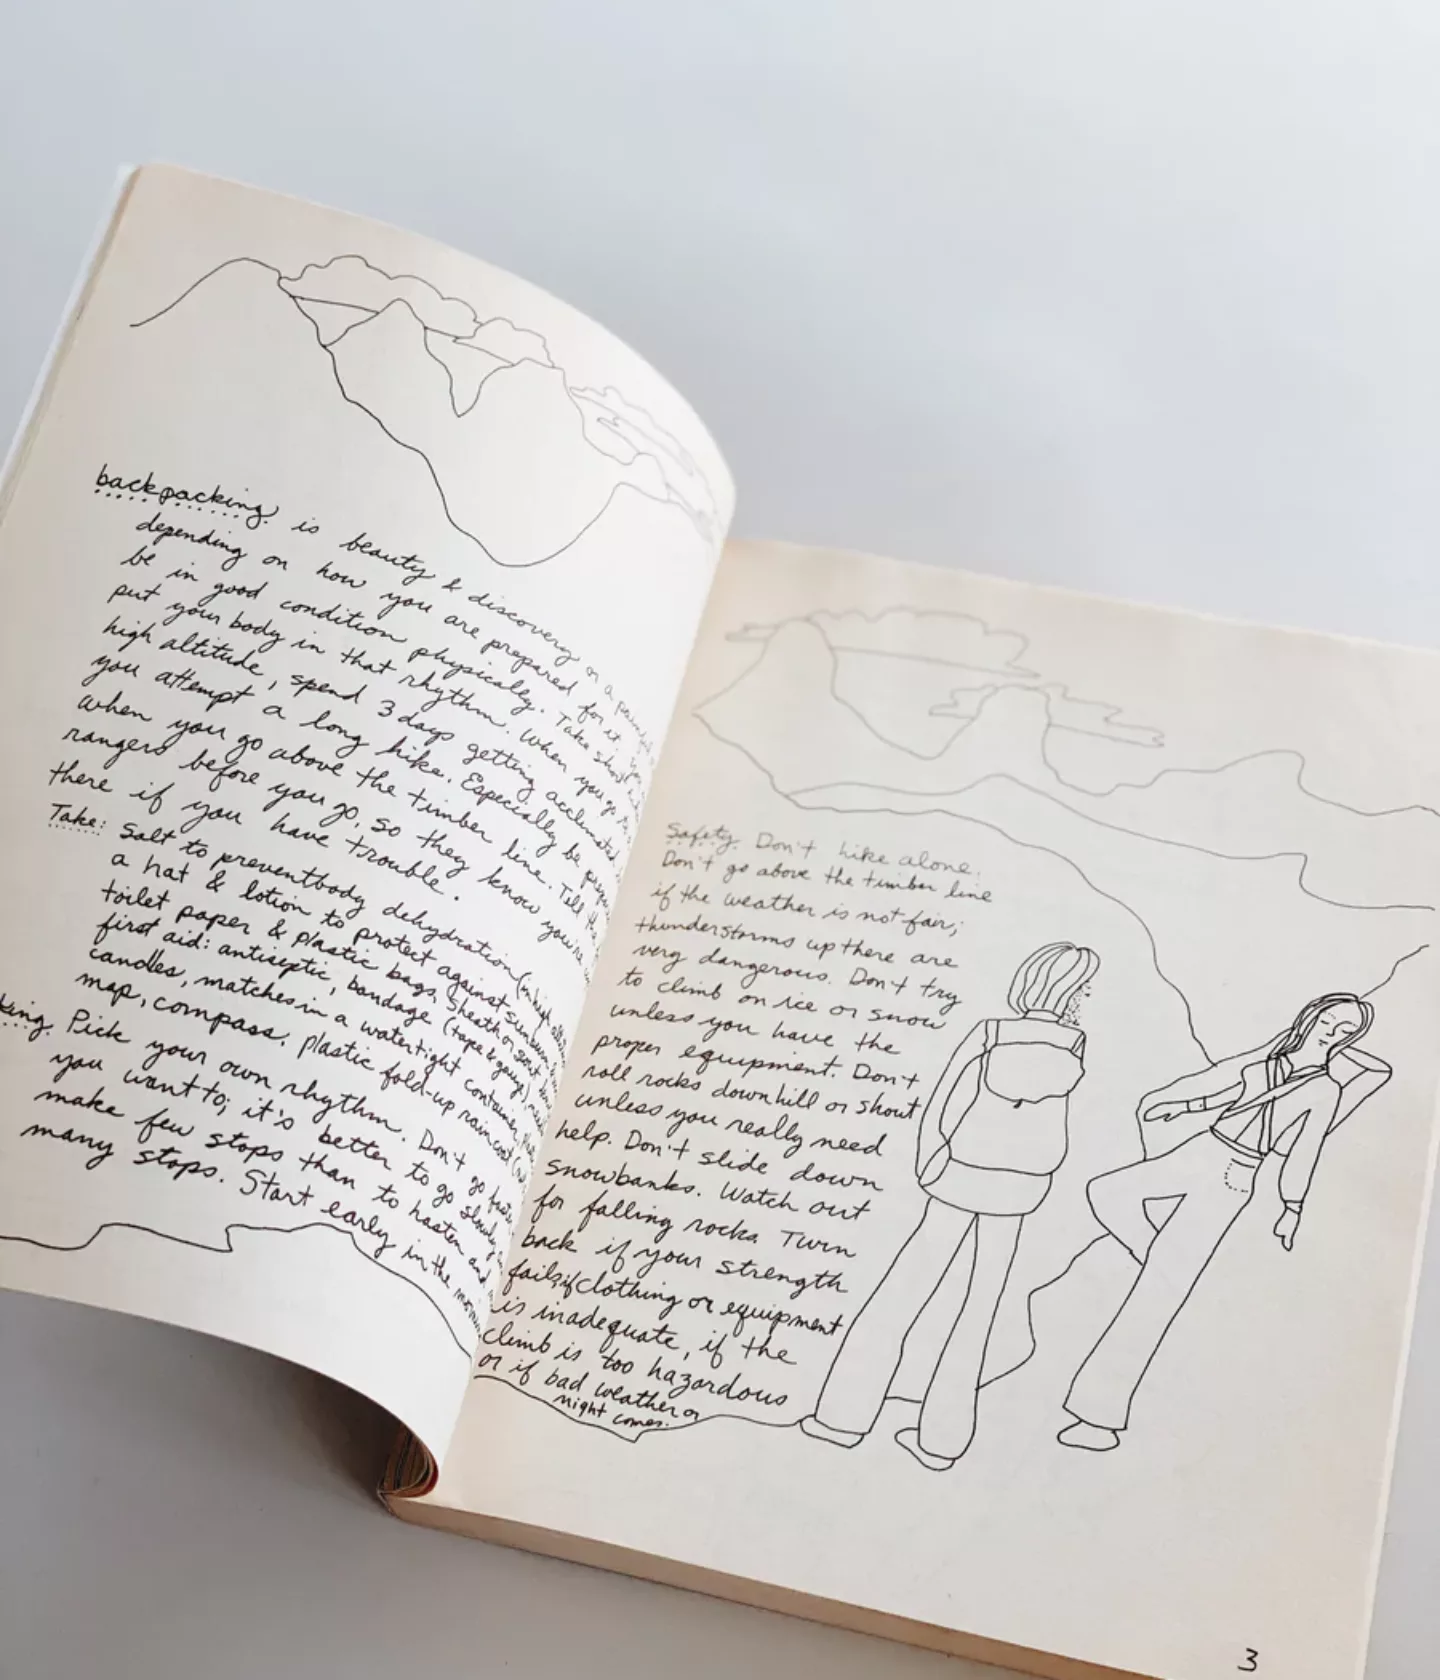 backpacking is beauty & discovery or a painful
depending on how you are prepared for it. You
be in good condition physically. Take short
put your body in that rhythm. When you go to
high altitude, spend 3 days getting acclimated
you attempt a long hike. Especially be prepared
when you go above the timber line. Tell the
rangers before you go, so they know you're
there if you have trouble.
Take: Salt to prevent body dehydration (in high
a hat & lotion to protect against sunburn
toilet paper & plastic bags, Sheath or
first aid: antiseptic, bandage (tape & gauze),
candles, matches in a watertight container,
map, compass, plastic fold-up raincoat
Pick your own rhythm. Don't go faster
you want to; it's better to go slowly
make few stops than to hasten and
many stops. Start early in the morning
Safety. Don't hike alone.
Don't go above the timber line
if the weather is not fair;
thunderstorms up there are
very dangerous. Don't try
to climb on ice or snow
unless you have the
proper equipment. Don't
roll rocks downhill or shout
unless you really need
help. Don't slide down
snowbanks. Watch out
for falling rocks. Turn
back if your strength
fails, if clothing or equipment
is inadequate, if the
climb is too hazardous
or if bad weather or
night comes.
3